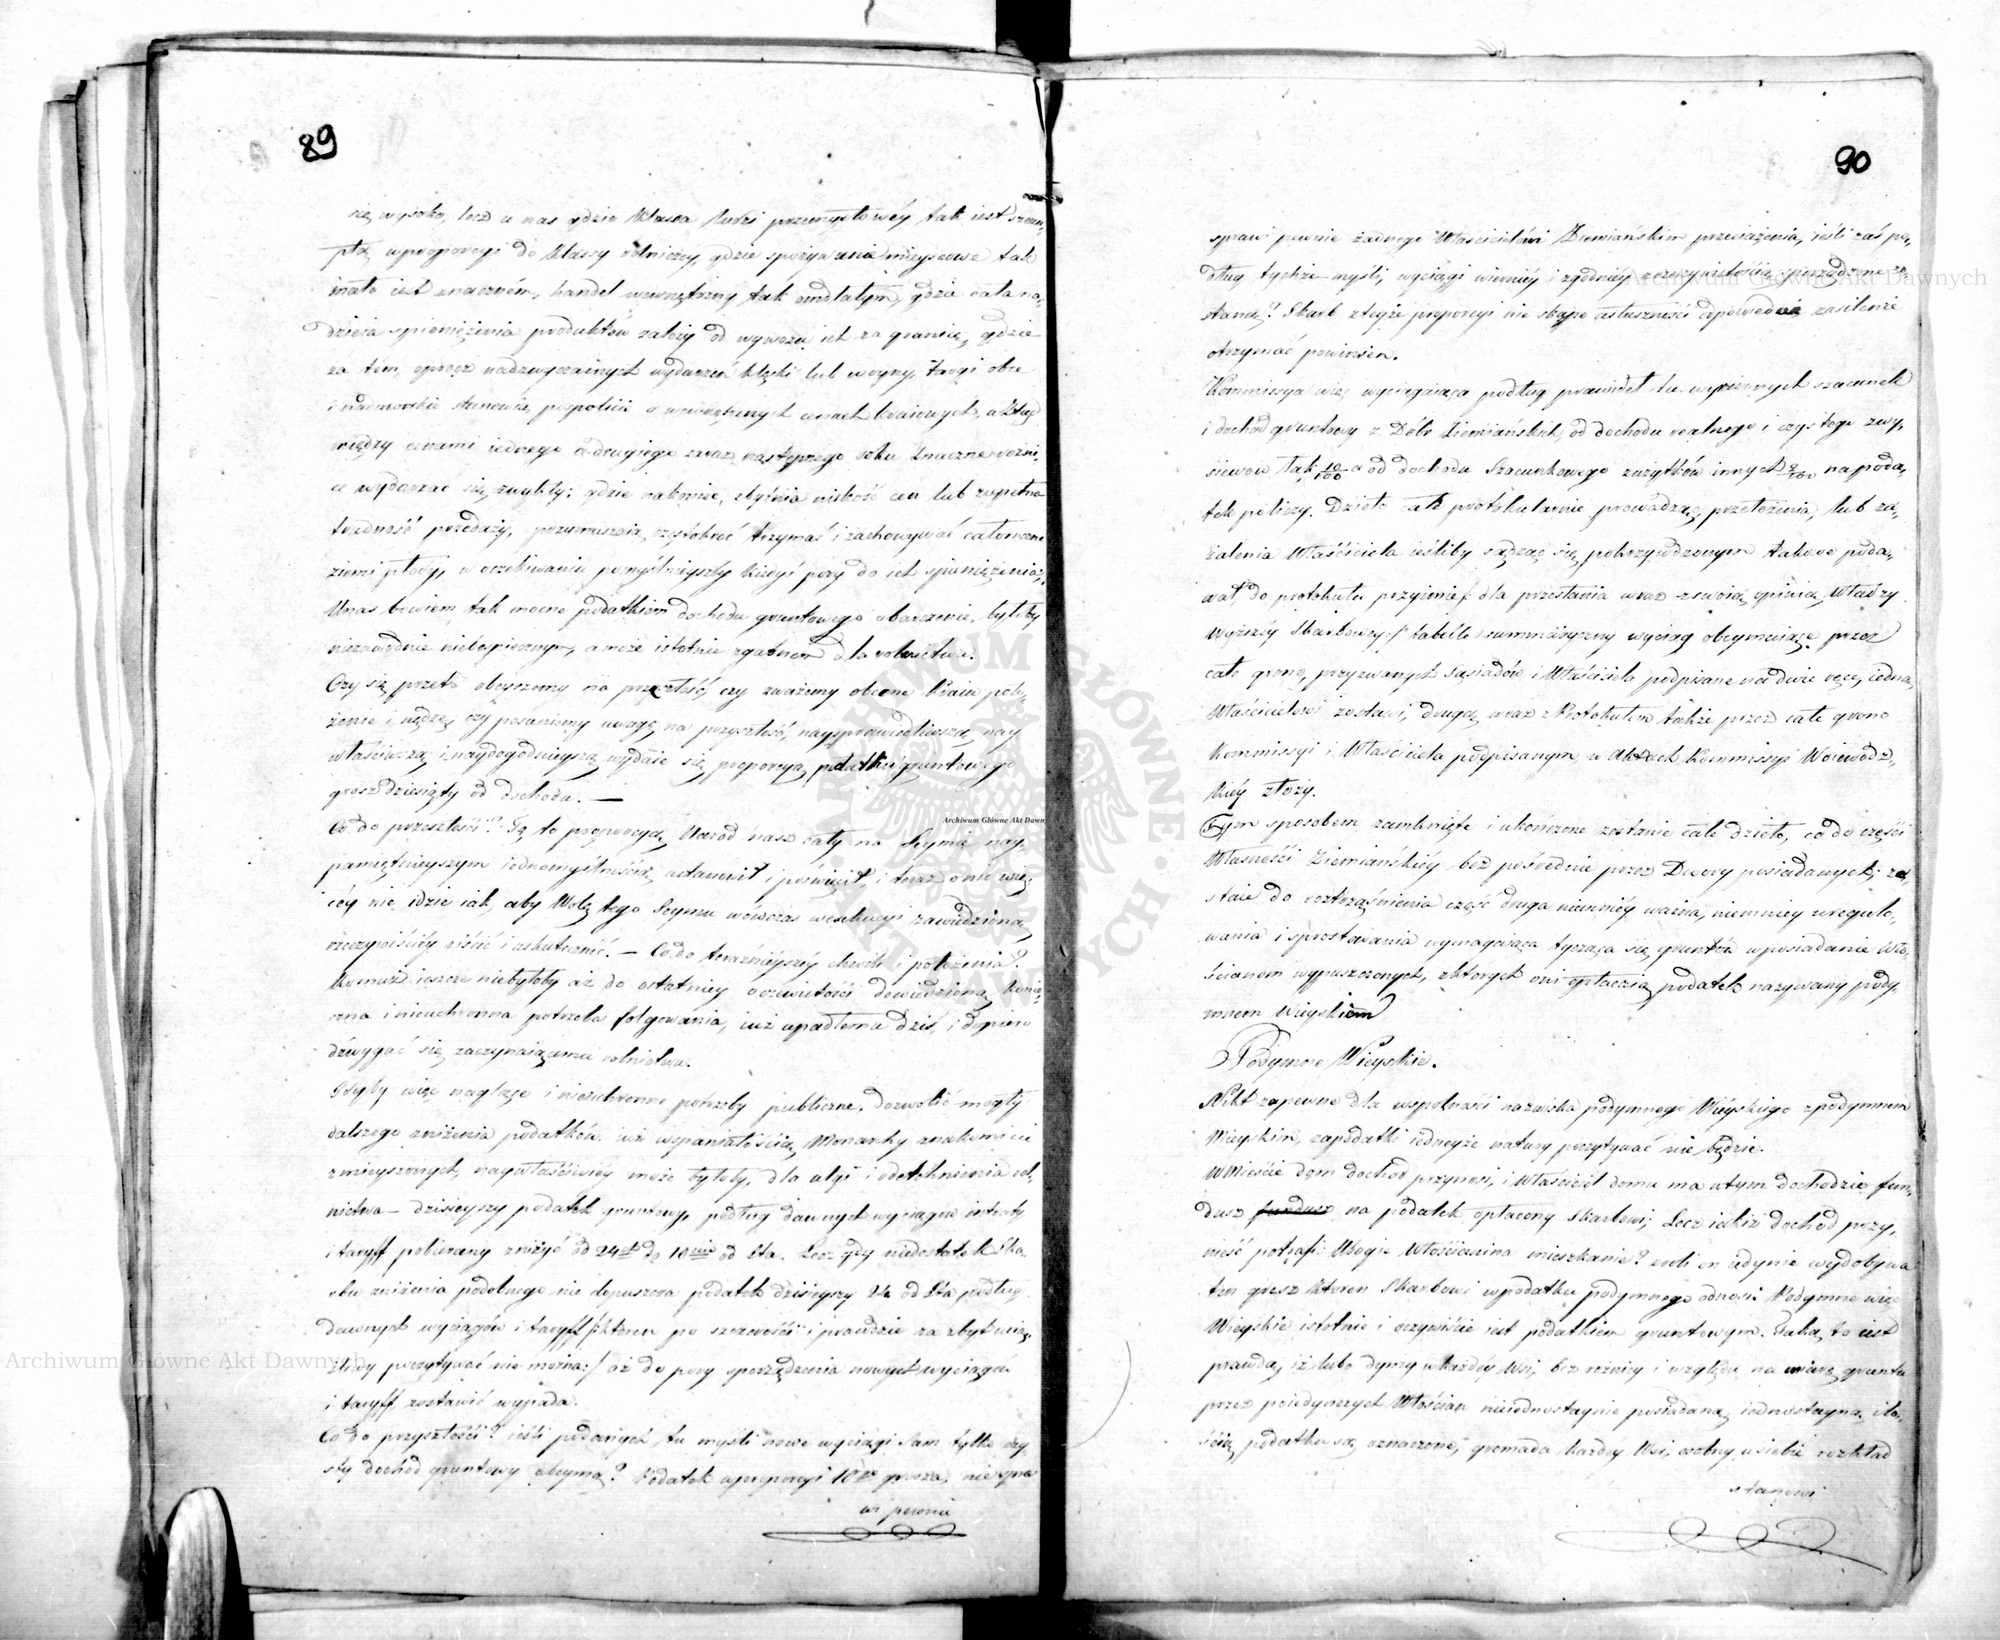 89
się wysoko, lecz u nas gdzie klassa ludzi przemysłowéy tak iest szczu-
płą w proporcyi do klassy rolniczey, gdzie spożywanie mieyscowe tak
mało iest znaczném, handel wewnętrzny tak ondlałym, gdzie cała na-
dzieia spieniężenia produktów zależy od wywozu ich za granicę, gdzie
za tém, oprócz nadzwyczainych wydarzeń klęski lub woyny, targi obce
i nadmorskie stanowią pospolicie o wewnętrznych cenach kraiowych, a ztąd
między cenami iednego a drugiego zaraz następnego roku znaczne różni-
ce wydarzać się zwykły; gdzie nakoniec, zbytnia niskość cen lub zupełna
trudność przedaży, przymuszaią częstokroć trzymać i zachowywać całoroczne
ziemi płody, w oczekiwaniu pomyślnieyszéy kiedyś pory do ich spieniężenia;
U nas bowiem tak mocne podatkiem dochodu gruntowego obarczenie, byłoby
niezawodnie niebespiecznym, a może istotnie zgubném dla rolnictwa.
Czy się przeto obeyrzemy na przeszłość, czy zważemy obecne kraiu poło-
żenie i nędzę, czy posuniemy uwagę na przyszłość, naysprawiedliwszą, nay
właściwszą i naydogodnieyszą wydaie się proporcya podatku gruntowego
grosz dziesiąty od dochodu. —
Co do przeszłości? Tę to proporcyą Naród nasz cały na Seymie nay
pamiętnieyszym iednomyślnością ustanowił i poświęcił, i teraz o nic wię-
céy nie idzie iak aby Wolę tego Seymu wówczas w exekucyi zawiedzioną,
rzeczywiściéy ziścić i uskutecznić. — Co do teraźnieyszéy chwili i położenia?
Komuż ieszcze niebyłoby aż do ostatniey oczewistości dowiedzioną konie-
czna i nieuchronna potrzeba folgowania, iuż upadłemu dziś, i dopiero
dźwygać się zaczynaiącemu rolnictwu.
Gdyby więc naglące i nieuchronne potrzeby publiczne, dozwolić mogły
dalszego zniżenia podatków iuż wspaniałością Monarchy znakomicie
zmnieyszonych, naywłaściwiéy może byłoby, dla ulgi i odetchnienia rol-
nictwa — dzisieyszy podatek gruntowy, podług dawnych wyciągów intraty
i taryff pobierany zniżyć od 24 do 10 od sta. Lecz gdy niedostatek Ska-
rbu zniżenia podobnego nie dopuszcza podatek dzisieyszy 24 od sta podług
dawnych wyciągów i taryff /: który po szczerości i prawdzie za zbyt wiel-
poczytywać nie można :/ aż do pory sporządzenia nowych wyciągów
i taryff zostawić wypada.
Co do przyszłości? ieśli podanych tu myśli nowe wyciągi sam tylko czy-
sty dochód gruntowy obeymą? Podatek w proporcyi 10go grosza, nie spra
wi pewnie
90
sprawi pewnie żadnego Właścicielowi Ziemiańskiem przeciążenia, ieśli zaś po-
dług tychże myśli, wyciągi wierniéy i zgodniéy z rzeczywistością sporządzone zo-
staną? Skarb z téyże proporcyi nie skąpe a słuszności odpowiednie zasilenie
otrzymać powinien.
Kommissya więc wyciągaiąca podług prawideł tu wyrażonych szacunek
i dochód gruntowy z Dóbr Ziemiańskich, od dochodu realnego i czystego z wy-
siewów tak 10/100 a od dochodu szacunkowego zużytków innych 9/100 na poda-
tek policzy. Dzieło całe protokularnie prowadząc, przełożenia, lub za-
żalenia Właściciela ieśliby sądząc się pokrzywdzonym takowe poda-
wał, do protokułu przyimie /: dla przesłania wraz z swoią opinią Władzy
Wyższéy Skarbowéy :/ tabellę summaryczny wyciąg obeymuiącą przez
całe grono, przyzwanych Sąsiadów i Właściciela podpisane na dwie ręce, iedną
Właścicielowi zostawi, drugą wraz z Protokułem także przez całe grono
Kommissyi i Właściciela podpisanym w Aktach Kommissyi Woiewódz-
kiéy złoży.
Tym sposobem zamknięte i ukończone zostanie całe dzieło, co do części
Własności Ziemiańskiéy bezpośrednie przez Dwory posiadanych; zo-
staie do roztrząśnienia część druga niemniéy ważna, niemniey uregulo-
wania i sprostowania wymagaiąca tycząca się gruntów w posiadanie Wło-
ścianom wypuszczonych, z których oni opłacaią podatek nazywany pody-
mnem Wieyskiem.
Podymne Wieyskie.
Nikt zapewne dla wspólności nazwiska podymnego Wieyskiego z podymnem
Mieyskim, za podatki iedneyże natury poczytywać nie będzie.
W Mieście dom dochód przynosi, i Właściciel domu ma w tym dochodzie fun-
dusz na podatek opłacony Skarbowi; Lecz iakiż dochód przy-
nieść potrafi Ubogie Włościanina mieszkanie? z roli on iedynie wydobywa
ten grosz któren Skarbowi w podatku podymnego odnosi. Podymne więc
Wieyskie istotnie i oczywiście iest podatkiem gruntowym. Taka to iest
prawda, iż lubo dymy w każdéy Wsi, bez różnicy i względu na miarę gruntu
przez poiedynczych Włościan nieiednostaynie posiadaną, iednostayną ilo-
ścią podatku są oznaczone, gromada każdéy Wsi, osobny u siebie rozkład
stanowi
Archiwum Główne Akt Dawnych
Archiwum Główne Akt Dawnych
Archiwum Główne Akt Dawnych
ARCHIWUM GŁÓWNE AKT DAWNYCH